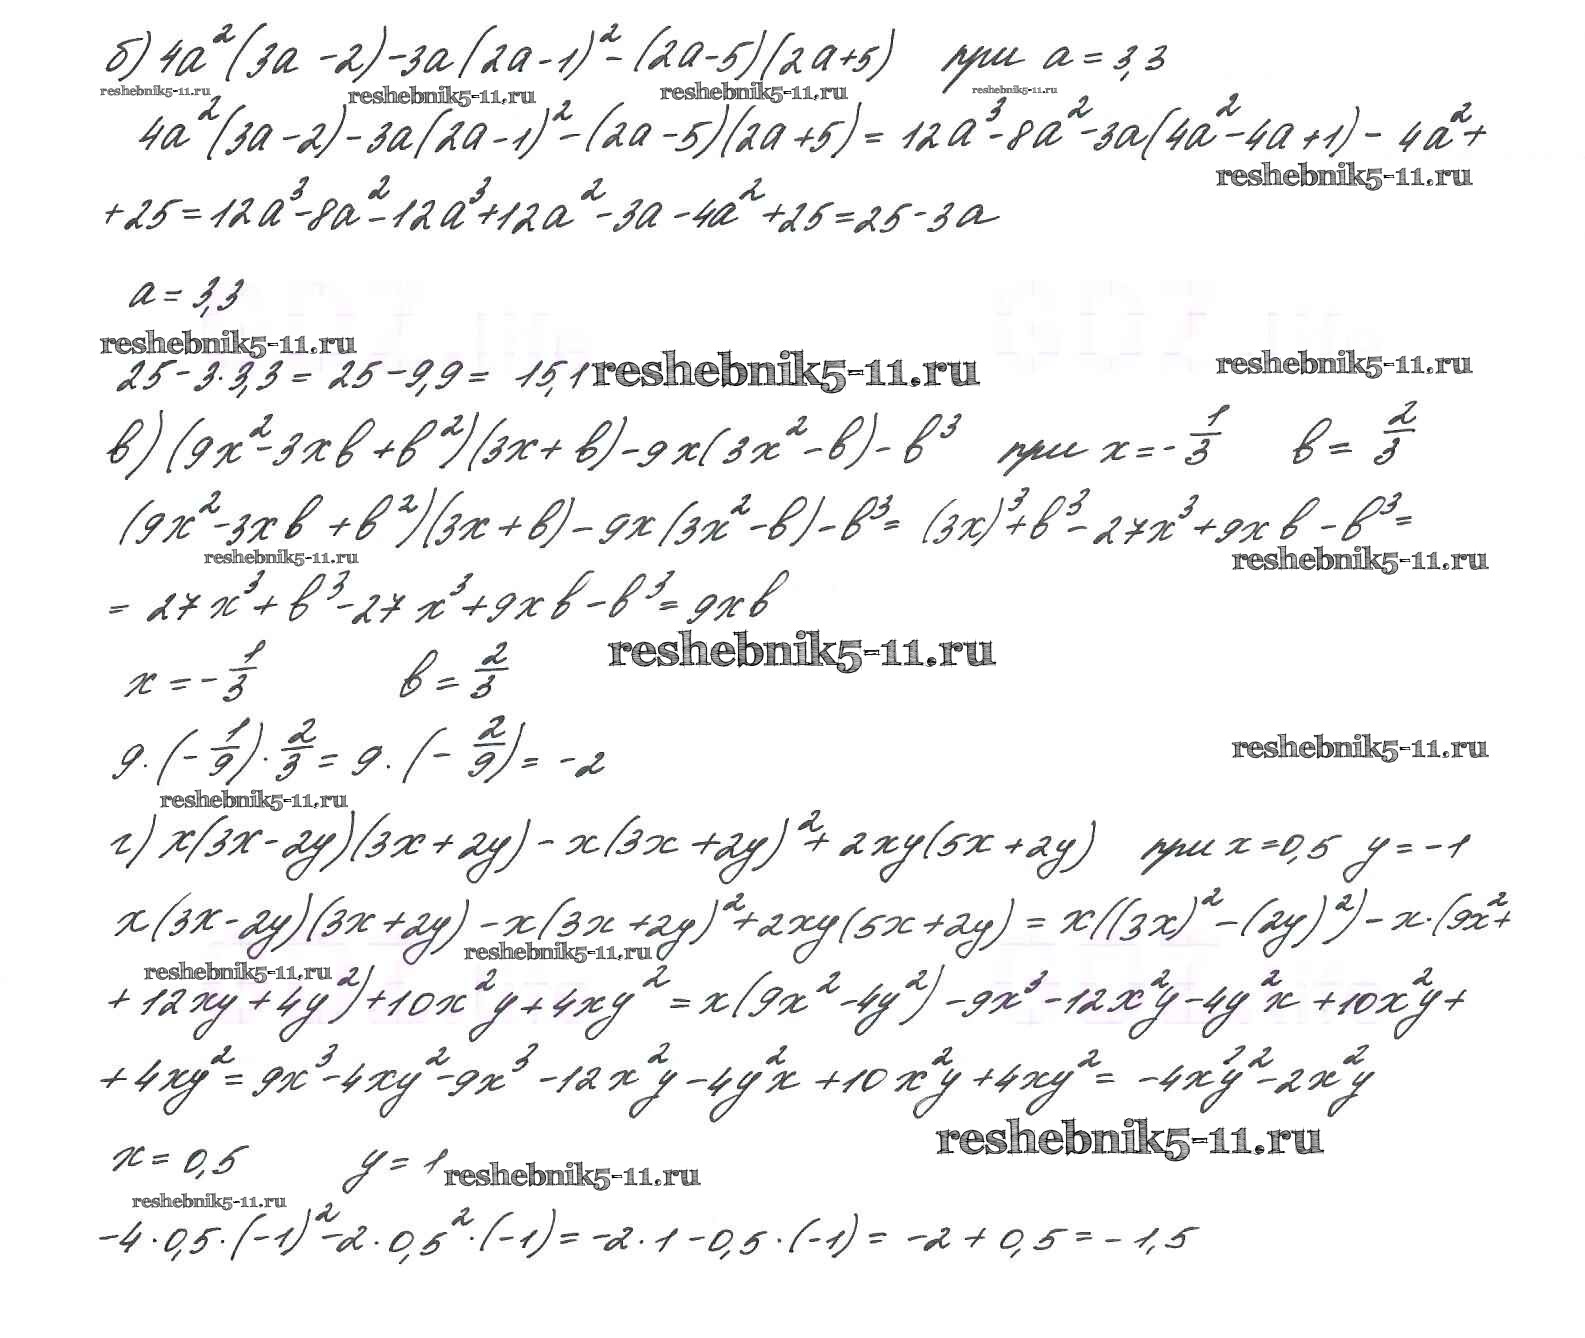 б) 4a²(3a-2)-3a(2a-1)²-(2a-5)(2a+5) при a=3,3
reshebnik5-11.ru reshebnik5-11.ru reshebnik5-11.ru reshebnik5-11.ru
4a²(3a-2)-3a(2a-1)²-(2a-5)(2a+5)=12a³-8a²-3a(4a²-4a+1)-4a²+
reshebnik5-11.ru
+25=12a³-8a²-12a³+12a²-3a-4a²+25=25-3a
a=3,3
reshebnik5-11.ru
25-3·3,3=25-9,9=15,1 reshebnik5-11.ru reshebnik5-11.ru
в) (9x²-3xв+в²)(3x+в)-9x(3x²-в)-в³ при x=-1/3 в=2/3
(9x²-3xв+в²)(3x+в)-9x(3x²-в)-в³=(3x)³+в³-27x³+9xв-в³=
reshebnik5-11.ru reshebnik5-11.ru
=27x³+в³-27x³+9xв-в³=9xв
reshebnik5-11.ru
x=-1/3 в=2/3
9·(-1/9)·2/3=9·(-2/9)=-2 reshebnik5-11.ru
reshebnik5-11.ru
г) x(3x-2y)(3x+2y)-x(3x+2y)²+2xy(5x+2y) при x=0,5 y=-1
x(3x-2y)(3x+2y)-x(3x+2y)²+2xy(5x+2y)=x((3x)²-(2y)²)-x·(9x²+
reshebnik5-11.ru reshebnik5-11.ru
+12xy+4y²)+10x²y+4xy²=x(9x²-4y²)-9x³-12x²y-4y²x+10x²y+
+4xy²=9x³-4xy²-9x³-12x²y-4y²x+10x²y+4xy²=-4xy²²-2x²y
reshebnik5-11.ru
x=0,5 y=1 reshebnik5-11.ru
reshebnik5-11.ru
-4·0,5·(-1)²-2·0,5²·(-1)=-2·1-0,5·(-1)=-2+0,5=-1,5